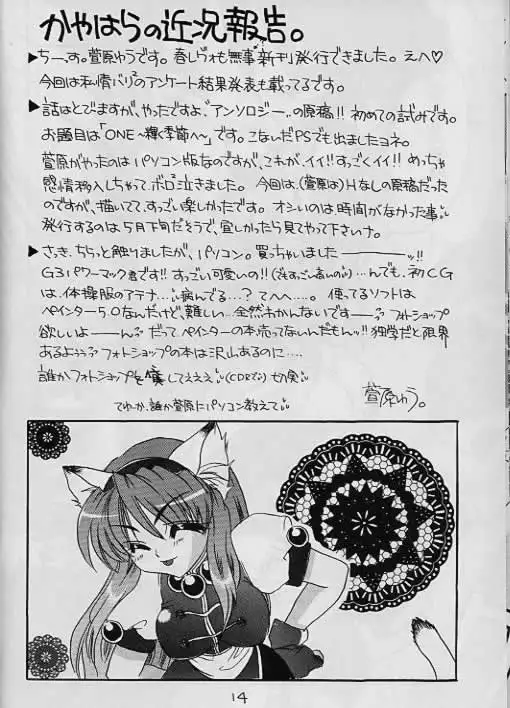 かやはらの近況報告。
▶ちーっす。萱原ゆうです。春しらふも無事新刊発行できました。えへ♡
今回は私情バリ²のアンケート結果発表も載ってるです。
▶話はとびますが、やったですよ、"アンソロジー"の原稿!! 初めての試みです。
お題目は「ONE~輝く季節へ~」です。こないだPSでも出ましたヨネ。
萱原がやったのはパソコン版なのですが、これが、イイ!!すっごくイイ!! めっちゃ
感情移入しちゃって、ボロ泣きました。今回は、(萱原は)Hなしの原稿だった
のですが、描いてて、すっごい楽しかったです。オシいのは時間がなかった事
発行するのは5月下旬だそうで、宜しかったら見てやって下さいナ。
▶さっき、ちらっと触りましたが、パソコン。買っちゃいました――――ッ!!
G3パワーマック君です!! すっごい可愛いの!! んでも、初CG
は、体操服のアテナ…病んでる…?てへへ…。使ってるソフトは
ペインター5.0なんだけど、難しい…全然わかんないですーー フォトショップ
欲しいよーーん だって、ペインターの本、売ってないんだもんッ!! 独学だと限界
あるよぅぅ フォトショップの本は沢山あるのに…。
誰かフォトショップを してえええ(CDRでッ)切実
てゆーか、誰か萱原にパソコン教えて
萱原ゆう。
14